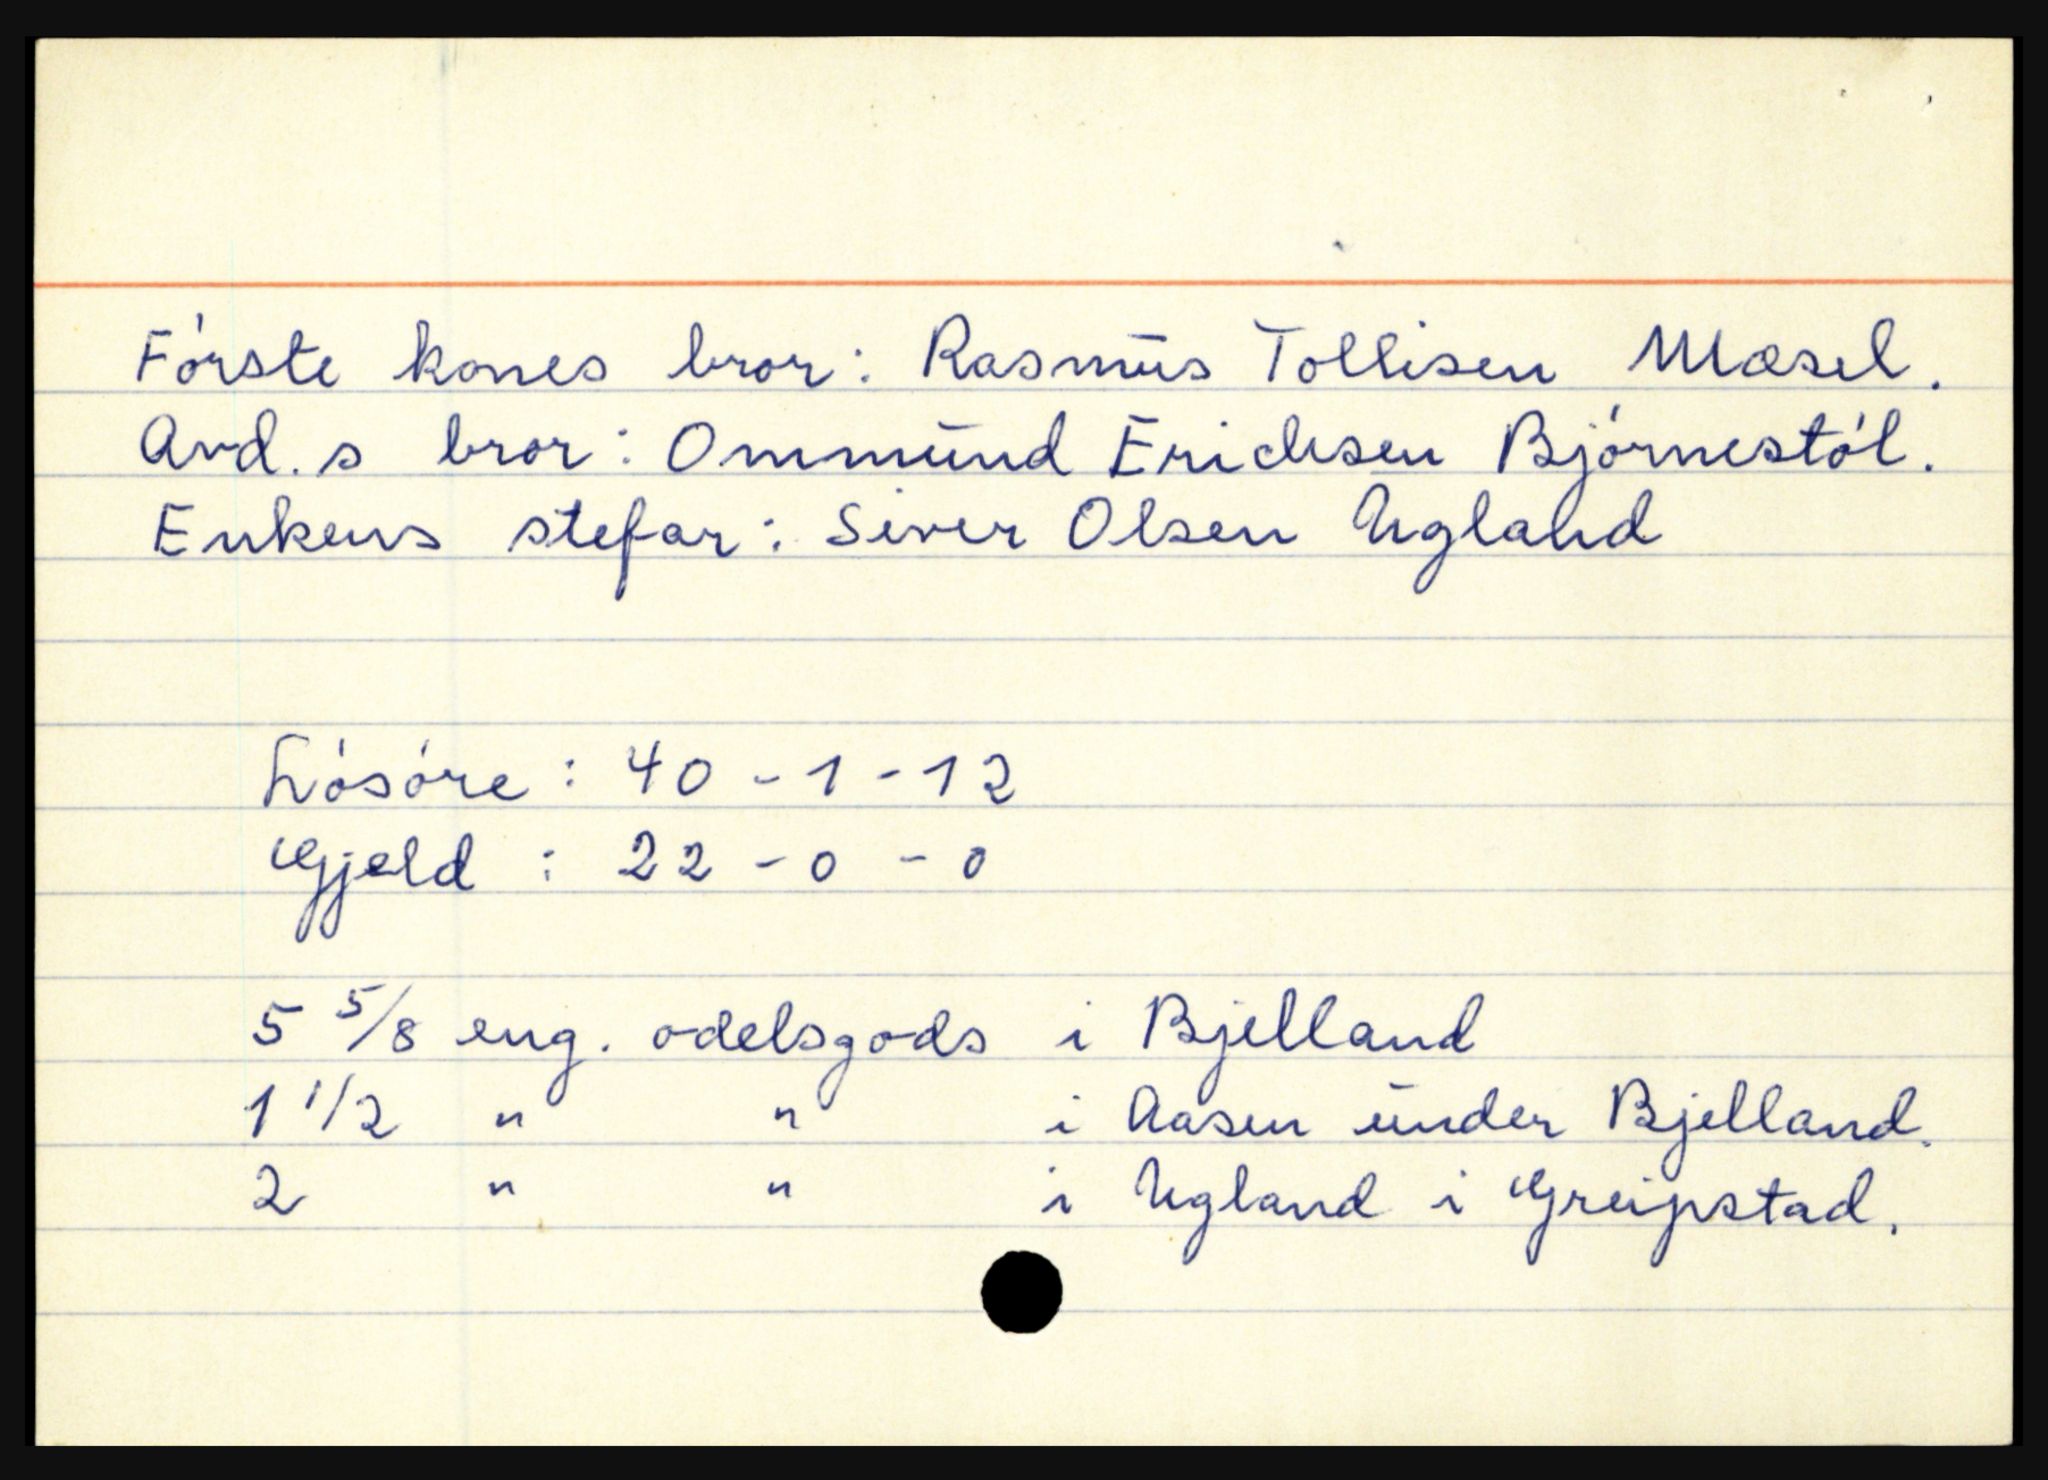 Første kones bror: Rasmus Tollisen Mæsel.
Avd.s bror: Ommund Erichsen Bjørnestøl.
Enkens stefar: Siver Olsen Ugland
Løsøre: 40-1-12
Gjeld: 22-0-0
5 5/8 eng. odelsgods i Bjelland
1 1/2 " " i Aasen under Bjelland.
2 " " i Ugland i Greipstad.